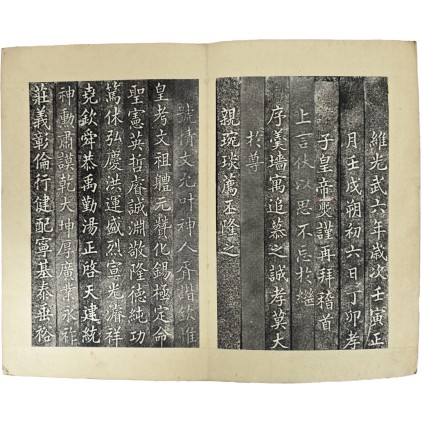 維光武六年歲次壬寅正
月壬戌朔初六日丁卯孝
子皇帝㷩謹再拜稽首
上言伏以思不忘於繼
序羹墻寓追慕之誠孝莫大
於尊
親琬琰薦丕隆之
號情文允叶神人齊諧欽惟
皇考文祖體元贊化錫極定命
聖憲英哲睿誠淵敬隆德純功
篤休弘慶洪運盛烈宣光濬祥
堯欽舜恭禹勤湯正啓天建統
神勳肅謨乾大坤厚廣業永祚
莊義彰倫行健配寧基泰垂裕